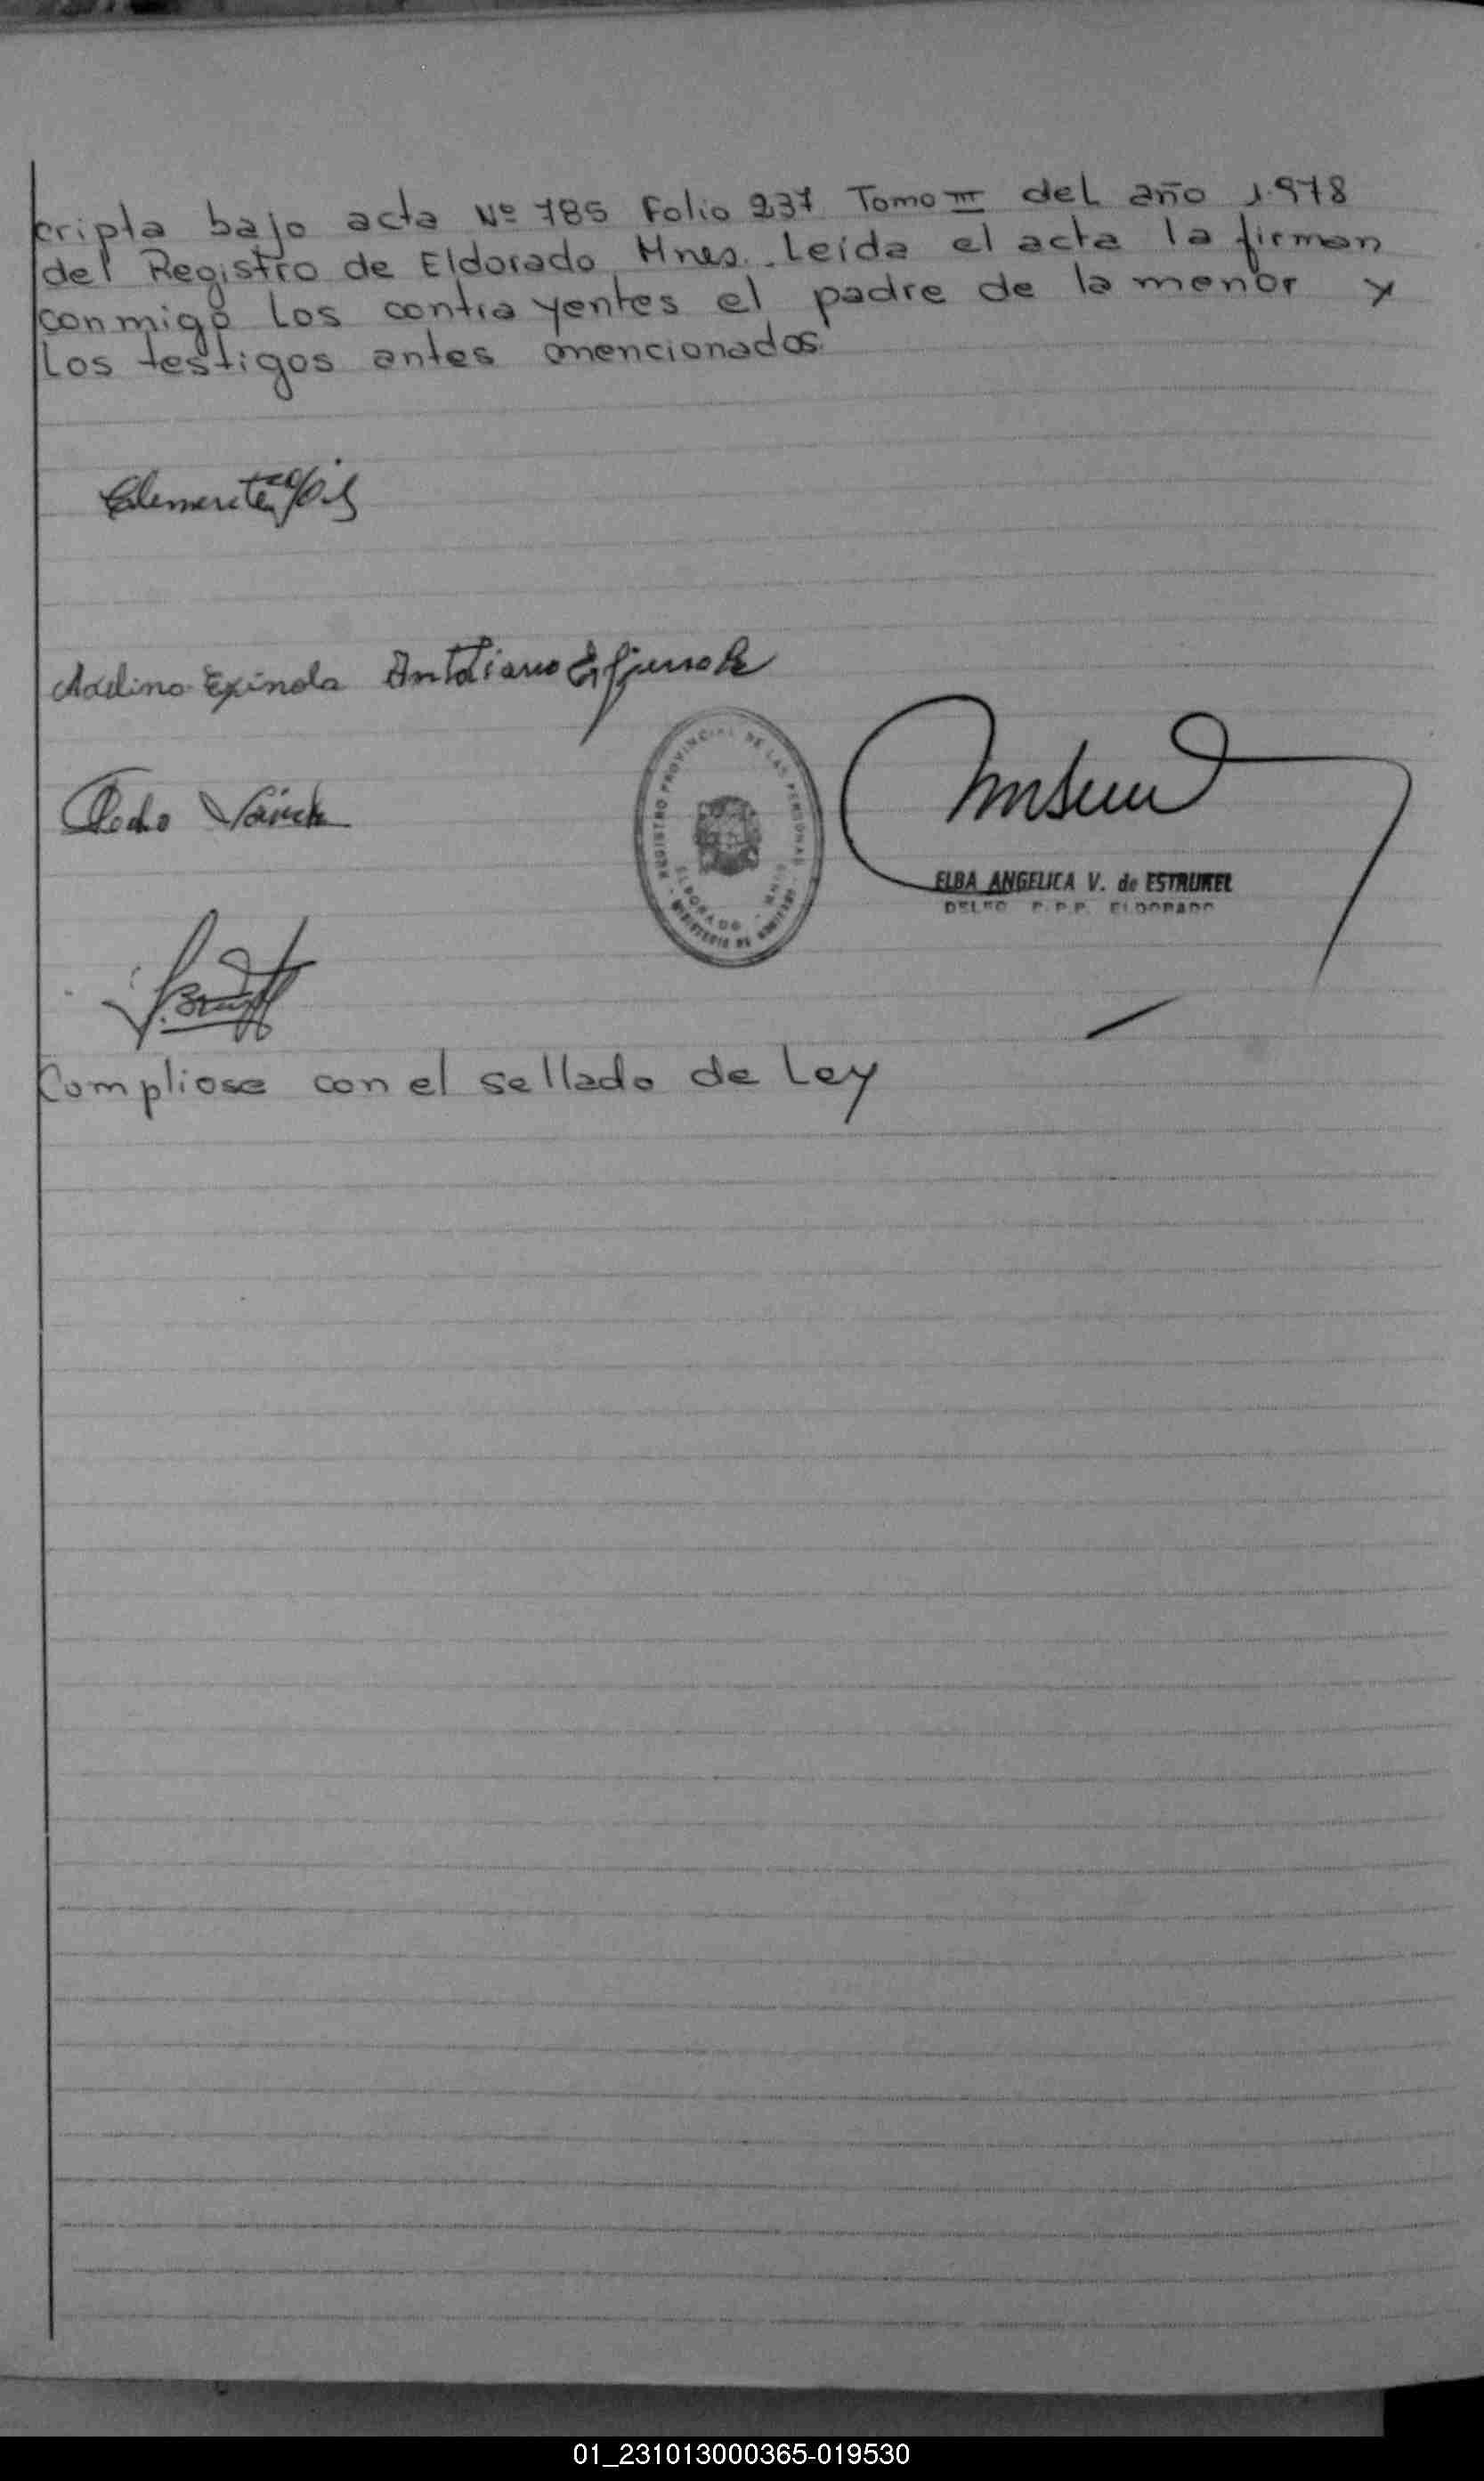 cripta bajo acta Nº 785 Folio 237 Tomo III del año 1.978
del Registro de Eldorado Mnes. Leída el acta la firman
conmigo los contrayentes el padre de la menor y
los testigos antes mencionados.
Clemente
Adelino Espinola Antoliano
Pedro
REGISTRO PROVINCIAL DE LAS PERSONAS
ELDORADO - MNES
MINISTERIO DE GOBIERNO
ELBA ANGELICA V. de ESTRUKEL
DELEG. R.P.P. ELDORADO
Compliose con el sellado de Ley
01_231013000365-019530